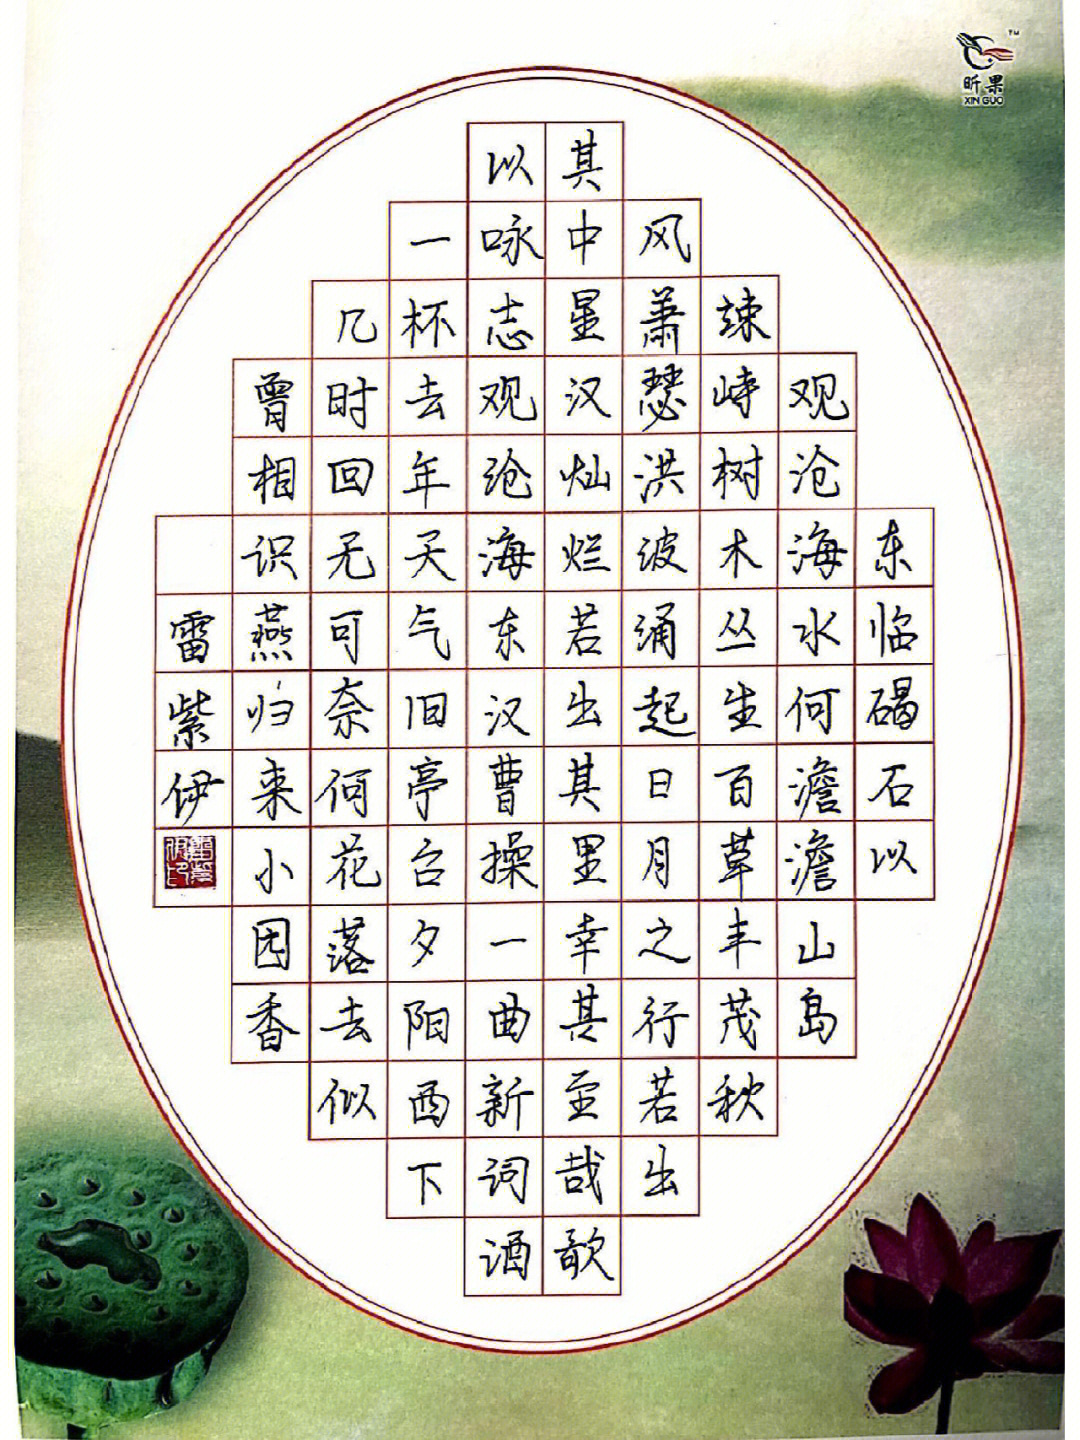 昕果
XIN GUO
TM
东临碣石以
观沧海水何澹澹山岛
竦峙树木丛生百草丰茂秋
风萧瑟洪波涌起日月之行若出
其中星汉灿烂若出其里幸甚至哉歌
以咏志观沧海东汉曹操一曲新词酒
一杯去年天气旧亭台夕阳西下
几时回无可奈何花落去似
曾相识燕归来小园香
雷紫伊